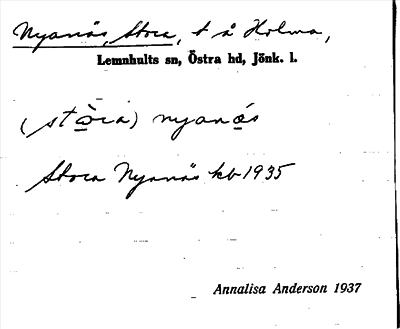 Nyanäs, Stora, t å Holma,
Lemnhults sn, Östra hd, Jönk. l.
(stòra) nyanäs
Stora Nyanäs kb 1935
Annalisa Anderson 1937